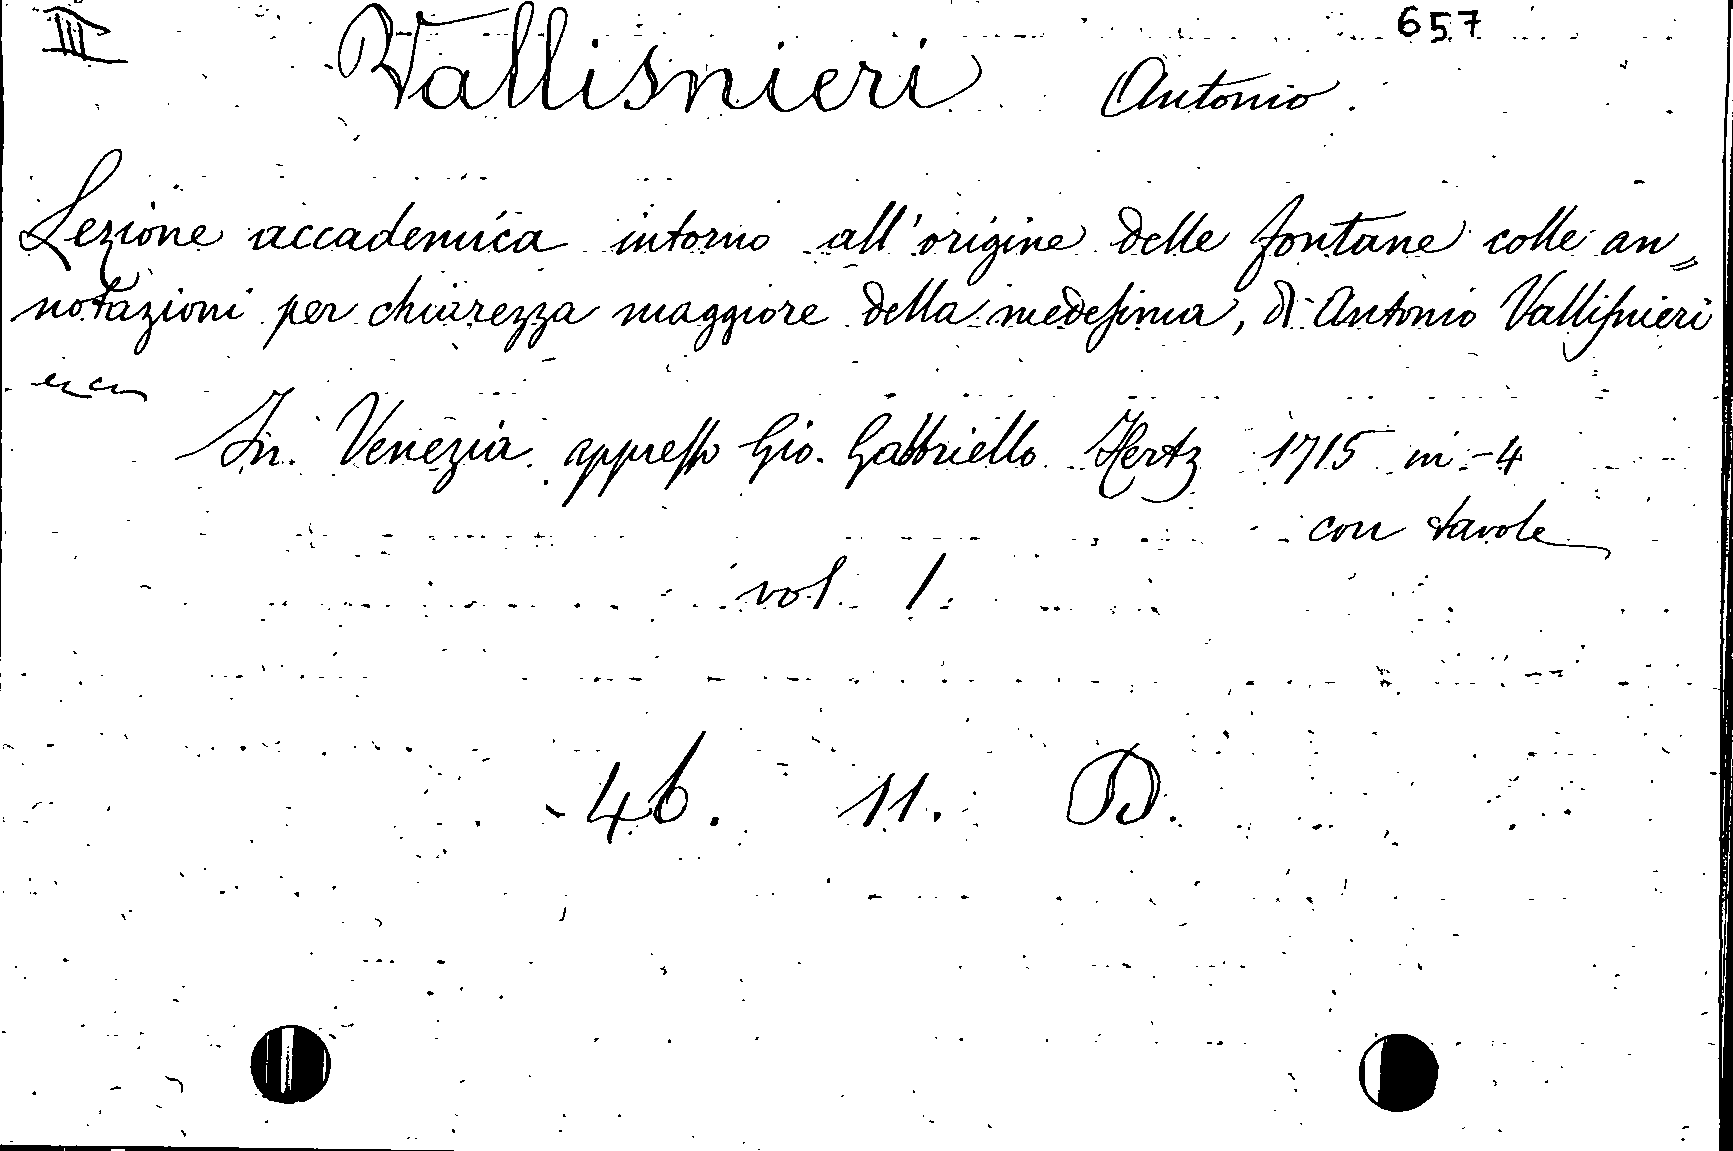 III 657
Vallisnieri Antonio.
Lezione accademica intorno all'origine delle fontane colle an=
notazioni per chiarezza maggiore della medeſima, di Antonio Valliſnieri
ecc
In Venezia appreſſo Gio. Gabbriello Hertz 1715 in-4
con tavole
vol 1.
46. 11. D.